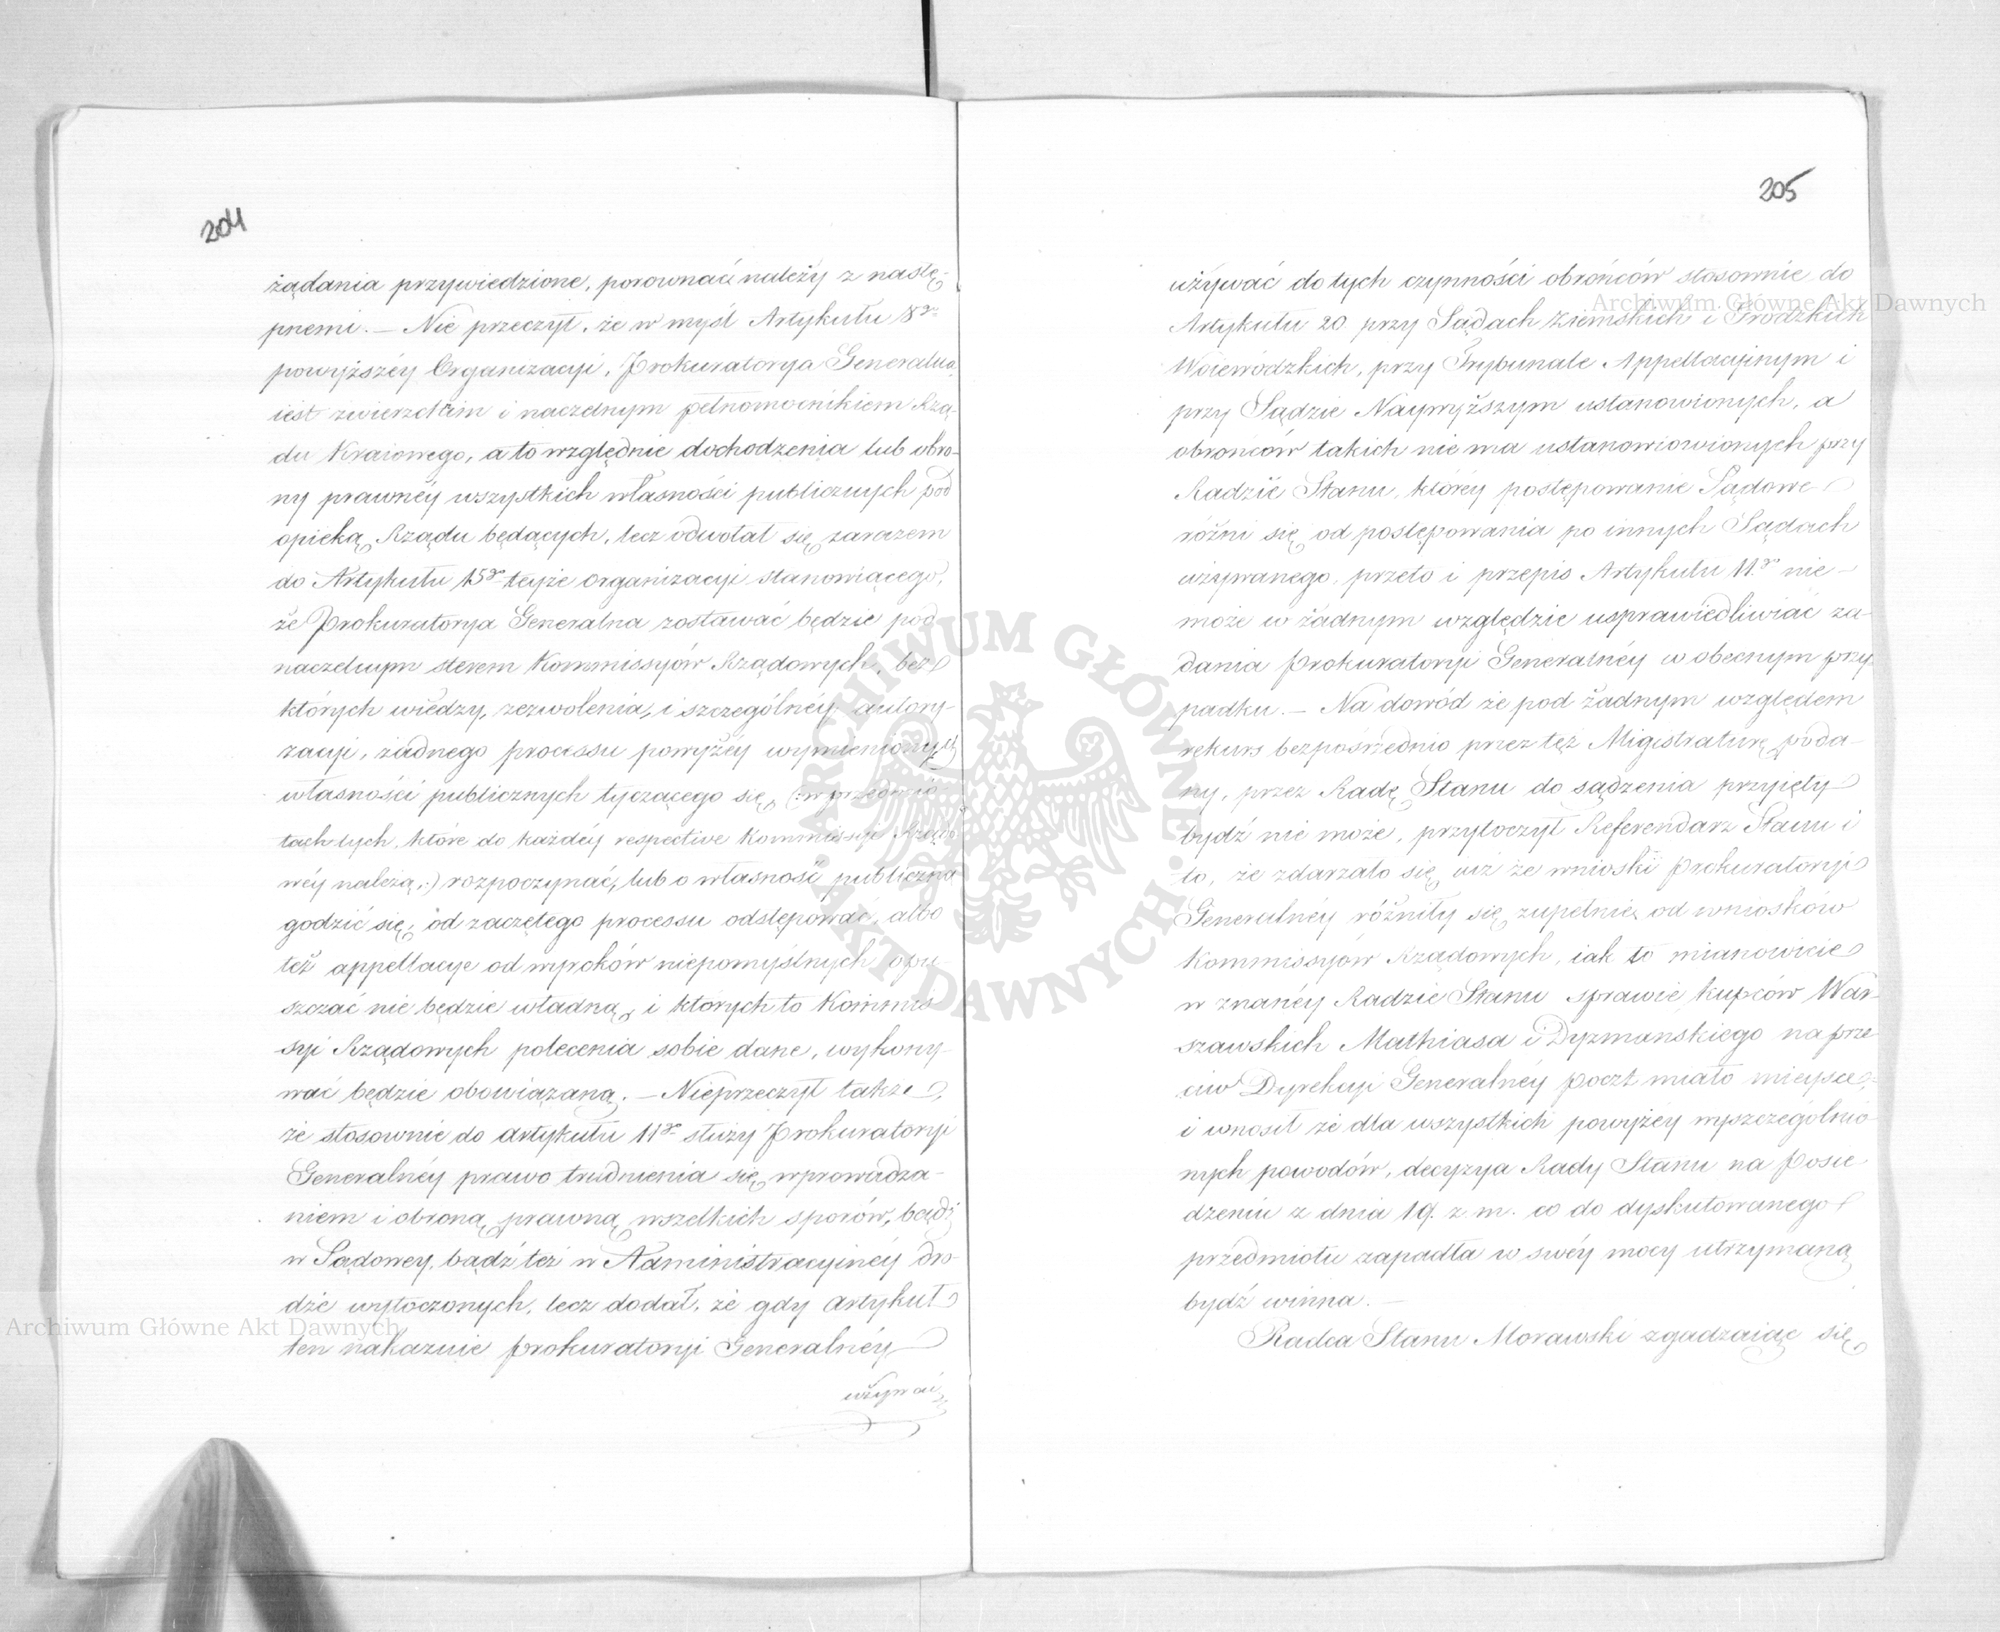 204
żądania przywiedzione, porownać należy z nastę-
pnemi. — Nie przeczył, że w myśl Artykułu 8go
powyższéy Organizacyi, Prokuratorya Generalna
iest zwierzchnim i naczelnym pełnomocnikiem Rzą-
du Kraiowego, a to względnie dochodzenia lub obro-
ny prawnéy wszystkich własności publicznych pod
opieką Rządu będących, lecz odwołał się zarazem
do Artykułu 15go teyże organizacyi stanowiącego,
że Prokuratorya Generalna zostawać będzie pod
naczelnym sterem Kommissyów Rządowych, bez
których wiedzy, zezwolenia, i szczególnéy autory-
zacyi, żadnego processu powyżéy wymienionych
własności publicznych tyczącego się, (: w przedmio-
tach tych, które do każdéy respective Kommissyi Rządo
wéy należą, :) rozpoczynać, lub o własność publiczną
godzić się, od zaczętego processu odstępować, albo
też appellacye od wyroków niepomyślnych opu-
szczać nie będzie władną, i których to Kommis
syi Rządowych polecenia sobie dane, wykony-
wać będzie obowiązaną. — Nieprzeczył także,
że stosownie do artykułu 11go służy Prokuratoryi
Generalnéy prawo trudnienia się wprowadza-
niem i obroną prawną wszelkich sporów, bądź
w Sądowey, bądź też w Administracyinéy dro-
dze wytoczonych, lecz dodał, że gdy artykuł
ten nakazuie Prokuratoryi Generalnéy
używać
205
używać do tych czynności obrońców stosownie do
Artykułu 20 przy Sądach Ziemskich i Grodzkich
Woiewódzkich, przy Trybunale Appellacyinym i
przy Sądzie Naywyższym ustanowionych, a
obrońców takich nie ma ustanowiowionych przy
Radzie Stanu, któréy postępowanie Sądowe
różni się od postępowania po innych Sądach
używanego, przeto i przepis Artykułu 11go nie-
może w żadnym względzie usprawiedliwiać żą-
dania Prokuratoryi Generalnéy w obecnym przy-
padku. — Na dowód że pod żadnym względem
rekurs bezpośrednio przez tęż Migistraturę poda-
ny, przez Radę Stanu do sądzenia przyięty
bydź nie może, przytoczył Referendarz Stanu i
to, że zdarzało się iuż że wnioski Prokuratoryi
Generalnéy różniły się zupełnie od wniosków
Kommissyów Rządowych, iak to mianowicie
w znanéy Radzie Stanu sprawie kupców War-
szawskich Mathiasa i Dyzmanskiego na prze
ciw Dyrekcyi Generalnéy Poczt miało mieysce,
i wnosił że dla wszystkich powyżéy wyszczególnio
nych powodów, decyzya Rady Stanu na Posie
dzeniu z dnia 19. z. m. co do dyskutowanego
przedmiotu zapadła w swéy mocy utrzymaną
bydź winna. —
Radca Stanu Morawski zgadzaiąc się
Archiwum Główne Akt Dawnych
Archiwum Główne Akt Dawnych
ARCHIWUM GŁÓWNE AKT DAWNYCH